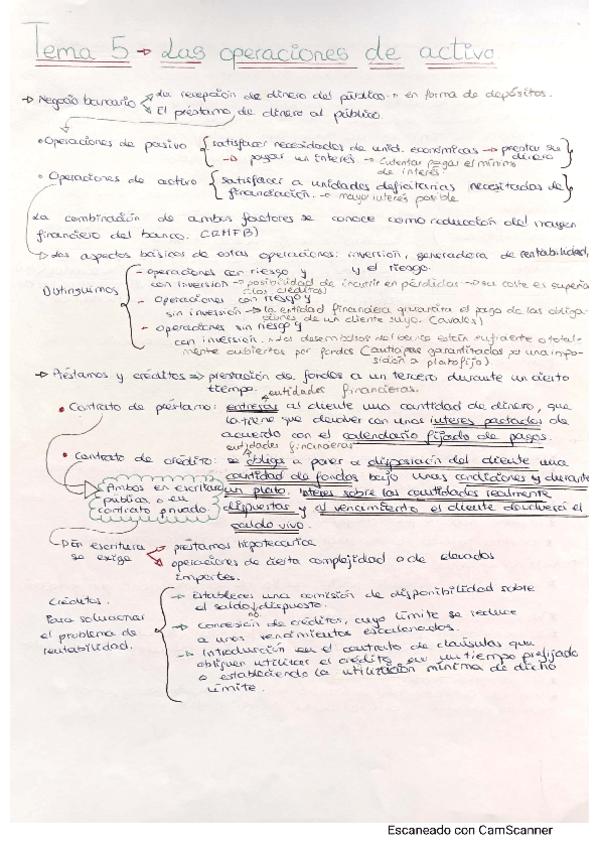 Tema 5 → Las operaciones de activo
→ Negocio bancario La recepción de dinero del público → en forma de depósitos.
El préstamo de dinero al público.
• Operaciones de pasivo { satisfacer necesidades de unid. económicas → prestar su dinero
→ pagar un interés → Intentar pagar el mínimo de interés
• Operaciones de activo { satisfacer a unidades deficitarias necesitadas de
financiación. → mayor interés posible
La combinación de ambos factores se conoce como reducción del margen
financiero del banco. (RMFB)
→ Los aspectos básicos de estas operaciones: inversión, generadora de rentabilidad,
y el riesgo.
Distinguimos
- operaciones con riesgo y
con inversión → posibilidad de incurrir en pérdidas → su coste es superior
(los créditos)
- Operaciones con riesgo y
sin inversión → la entidad financiera garantiza el pago de las obliga-
ciones de un cliente suyo. (Avales)
- operaciones sin riesgo y
con inversión. → los desembolsos del banco están suficiente o total-
mente cubiertos por fondos (
garantizados
a plazo fijo)
→ Préstamos y créditos => prestación de fondos a un tercero durante un cierto
tiempo.
entidades financieras.
• Contrato de préstamo: entregar al cliente una cantidad de dinero, que
la tiene que devolver con unos interés pactados de
acuerdo con el calendario fijado de pagos.
entidades financieras
• Contrato de crédito: se obliga a poner a disposición del cliente una
cantidad de fondos bajo unas condiciones y durante
un plazo. Interés sobre las cantidades realmente
dispuestas y al vencimiento el cliente devolverá el
saldo vivo.
Ambos en escritura
pública o en
contrato privado.
→ En escritura
se exige
préstamos hipotecarios
operaciones de cierta complejidad o de elevados
importes.
Créditos.
Para solucionar
el problema de
rentabilidad.
→ Establecer una comisión de disponibilidad sobre
el saldo no dispuesto.
→ Concesión de créditos, cuyo límite se reduce
a unos vencimientos escalonados.
→ Introducción en el contrato de cláusulas que
obliguen utilizar el crédito en un tiempo prefijado
o estableciendo la utilización mínima de dicho
límite.
Escaneado con CamScanner